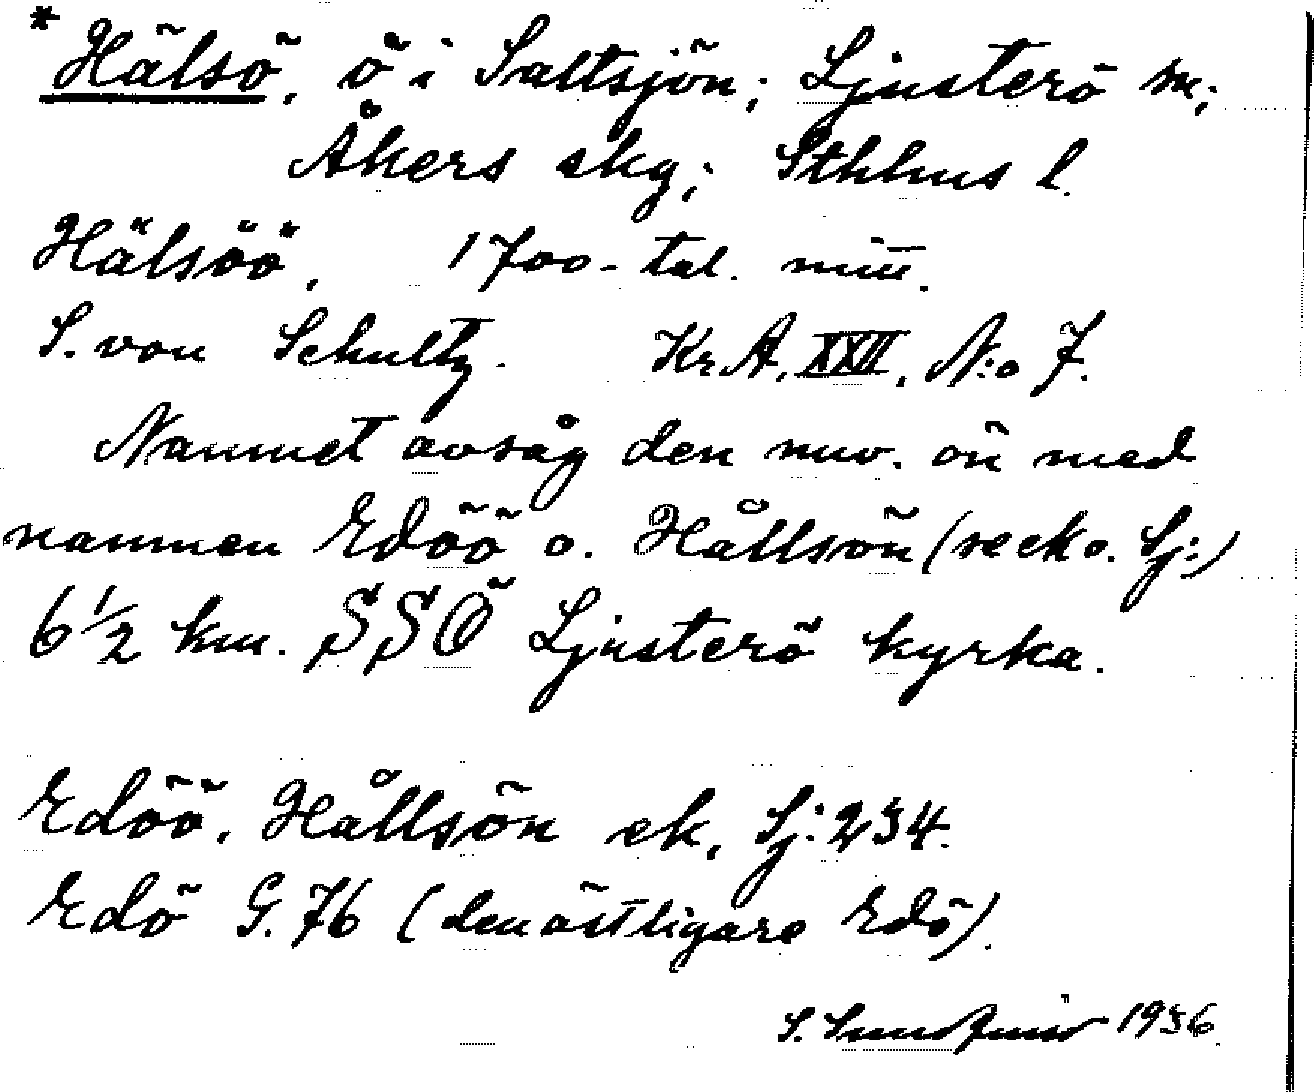 *Hälsö, ö i Saltsjön; Ljusterö sn;
Åkers skg; Sthlms l.
Hälsöö, 1700-tal. mitt.
S. von Schultz. KrA. XXII. N:o 7.
Namnet avsåg den nuv. ön med
namnen Edöö o. Hållsön (seek o. Sj:)
6 1/2 km. SSÖ Ljusterö kyrka.
Edöö, Hållsön ek, Sj: 234.
Edö G. 76 (den östligare Edö).
S. 1936